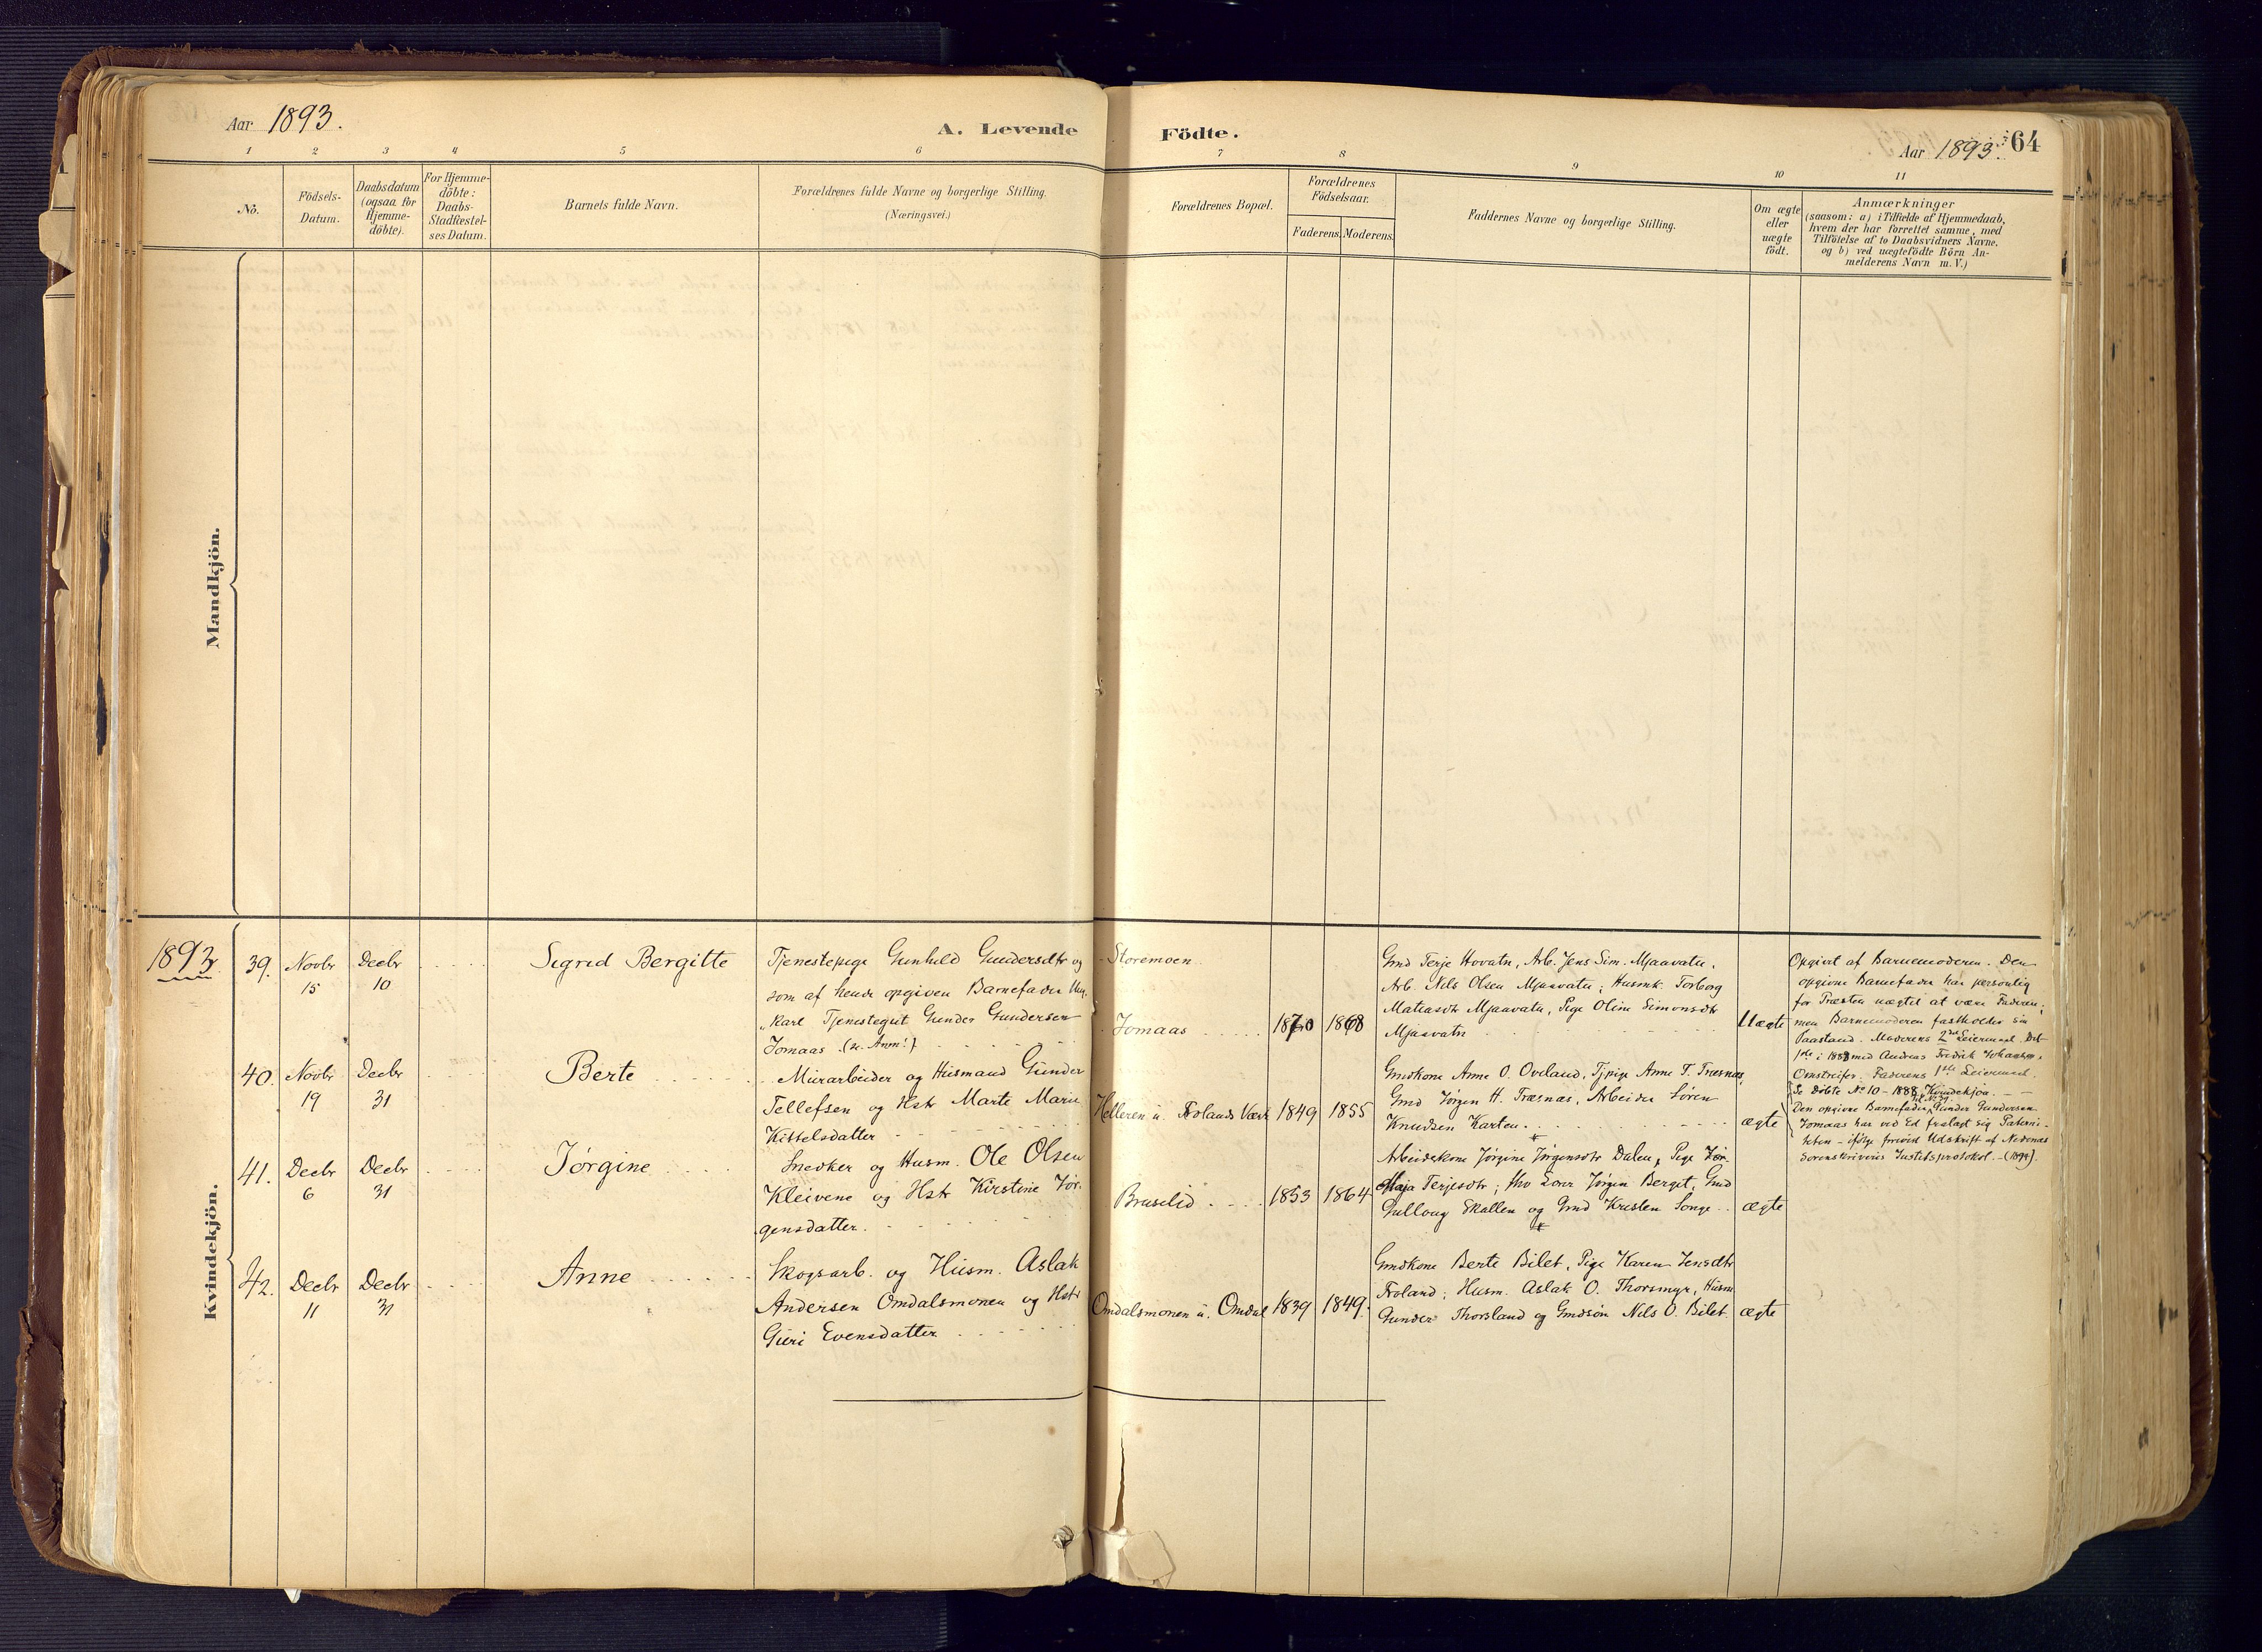 Aar 1893.
A. Levende
Födte.
Aar 1893.
64
1 2 3 4 5 6 7 8 9 10 11
No.
Födsels-
Datum.
Daabsdatum
(ogsaa for
Hjemme-
döbte).
For Hjemme-
döbte:
Daabs-
Stadfæstel-
ses Datum.
Barnets fulde Navn.
Forældrenes fulde Navne og borgerlige Stilling.
(Næringsvei.)
Forældrenes Bopæl.
Forældrenes
Födselsaar.
Faderens. Moderens.
Faddernes Navne og borgerlige Stilling.
Om ægte
eller
uægte
födt.
Anmærkninger
(saasom: a) i Tilfælde af Hjemmedaab,
hvem der har forrettet samme, med
Tilföielse af to Daabsvidners Navne.
og b) ved uægtefödte Börn An-
melderens Navn m. V.)
Mandkjön.
Kvindekjön.
1893.
39.
Novbr
15
Decbr
10
Sigrid Bergitte
Tjenestepige Gunhild Gundersdtr og
som af hende opgiven Barnefader Ung-
karl Tjenestegut Gunder Gundersen
Jomaas (se Anm!)
Storemoen
Jomaas
1870
1868
Gmd Terje Hovatn, Arb. Jens Sim. Mjaavatn,
Arb. Nils Olsen Mjaavatn; Husmk. Torborg
Matiasdtr Mjaavatn, Pige Oline Simonsdtr
Mjaavatn
Uægte
Opgivet af Barnemoderen. Den
opgivne Barnefader har personlig
for Præsten nægtet at være Faderen;
men Barnemoderen fastholder sin
Paastand. Moderens 2det Leiermaal. Det
1ste i 1888 med Andreas Fredrik Johansen,
Omstreifer. Faderens 1ste Leiermaal.
Se Döbte No 10 - 1888 Kvindekjön.
Den opgivne Barnefader Gunder Gundersen
Jomaas har ved Ed fralagt sig Paterni-
teten - ifölge Udskrift af Nedenæs
Sorenskriveries Justitsprotokol. - (1894).
40.
Novbr
19
Decbr
31
Berte
Murarbeider og Husmand Gunder
Tellefsen og Hstr Marte Marie
Kittelsdatter
Helleren u. Frolands Værk
1849
1855
Gmdkone Anne O. Oveland, Tjpige Anne T. Træsnæs,
Gmd Jörgen H. Træsnæs, Arbeider Sören
Knudsen Karten.
ægte
41.
Decbr
6
Decbr
31
Jörgine
Snedker og Husm. Ole Olsen
Kleivene og Hstr Kirstine Jör-
gensdatter
Bruselid
1853
1864
Arbeidskone Jörgine Jörgensdtr Dalen, Pige
Maja Terjesdtr; Jörgen Berget, Gmd
Gulloug Skallen og Gmd Kristen Songe
ægte
42.
Decbr
11
Decbr
31
Anne
Skogsarb. og Husm. Aslak
Andersen Omdalsmonen og Hstr
Guri Evensdatter
Omdalsmonen u. Omdal
1839
1849.
Gmdkone Berte Bilet, Pige Karen Jensdtr
Froland; Husm. Aslak O. Thorsmyr, Husm
Gunder Thorsland og Gmdsön Nils O. Bilet.
ægte